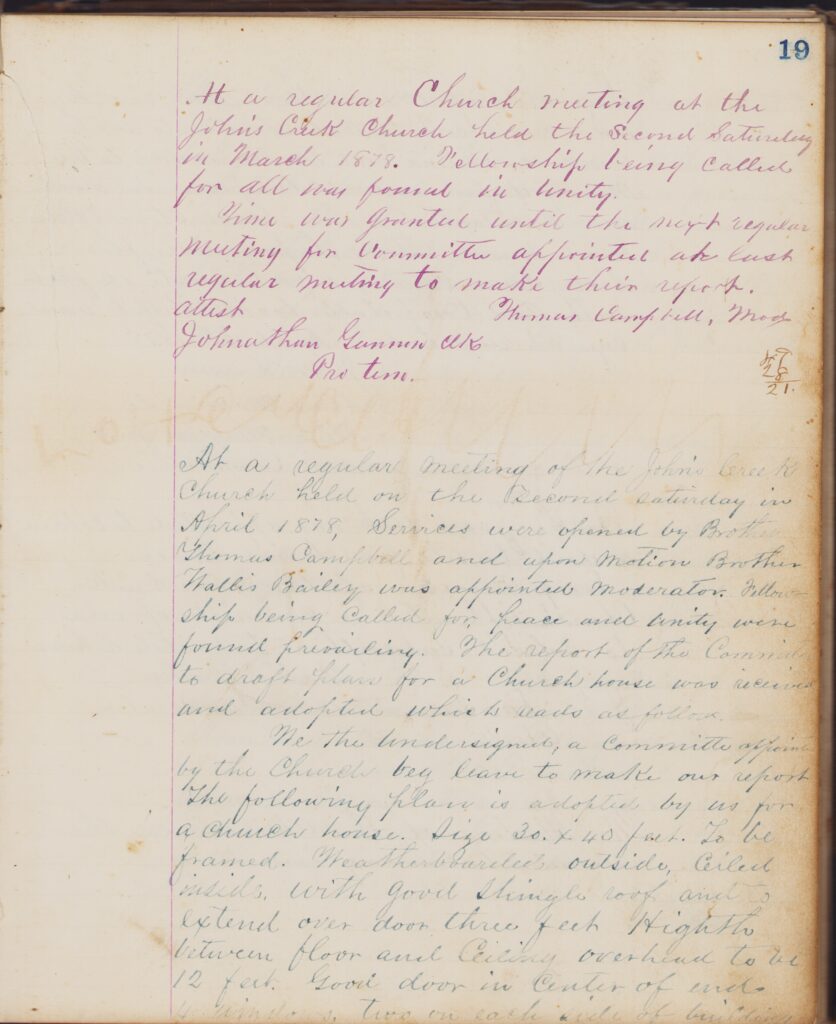 19
At a regular Church meeting at the
John's Creek Church held the Second Saturday
in March 1878. Fellowship being Called
for all was found in Unity.
Time was Granted until the next regular
meeting for Committe appointed at last
regular meeting to make their report.
attest Thomas Campbell, Mod
Johnathan Clk
Pro tem.
28
21.
At a regular meeting of the John's Creek
Church held on the Second Saturday in
April 1878, Services were opened by Brother
Thomas Campbell and upon Motion Brother
Wallis Bailey was appointed Moderator. Fellow-
ship being Called for, peace and Unity were
found prevailing. The report of the Committe
to draft plan for a Church house was received
and adopted which reads as follow.
We the Undersigned, a Committe appoint
by the Church beg leave to make our report
The following plan is adopted by us for
a church house. Size 30. x 40 feet. To be
framed. Weatherboarded outside, Ceiled
inside, with good Shingle roof and to
extend over door three feet Highth
between floor and Ceiling overhead to be
12 feet. Good door in Center of end
4 windows, two on each side of building